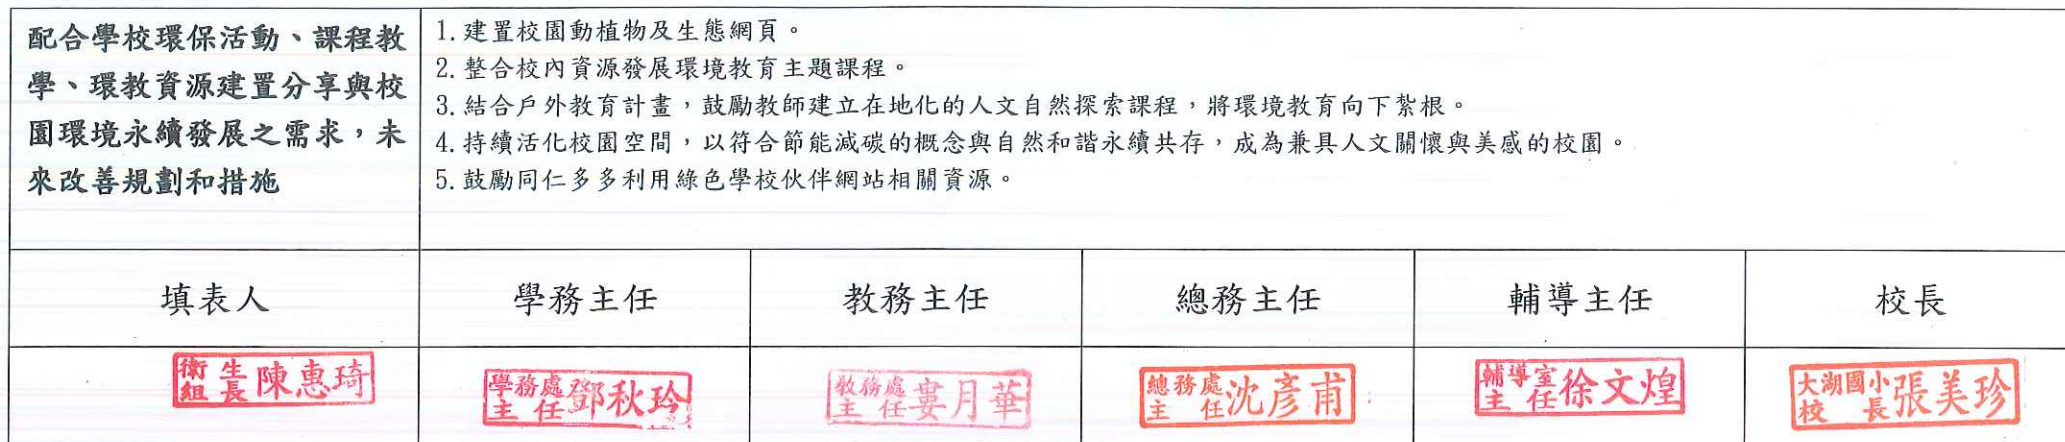 配合學校環保活動、課程教
學、環教資源建置分享與校
園環境永續發展之需求，未
來改善規劃和措施
1.建置校園動植物及生態網頁。
2.整合校內資源發展環境教育主題課程。
3.結合戶外教育計畫，鼓勵教師建立在地化的人文自然探索課程，將環境教育向下紮根。
4.持續活化校園空間，以符合節能減碳的概念與自然和諧永續共存，成為兼具人文關懷與美感的校園。
5.鼓勵同仁多多利用綠色學校伙伴網站相關資源。
填表人 學務主任 教務主任 總務主任 輔導主任 校長
衛生組長陳惠琦
學務處主任鄧秋玲
教務處主任婁月華
總務處主任沈彥甫
輔導室主任徐文煌
大湖國小校長張美珍